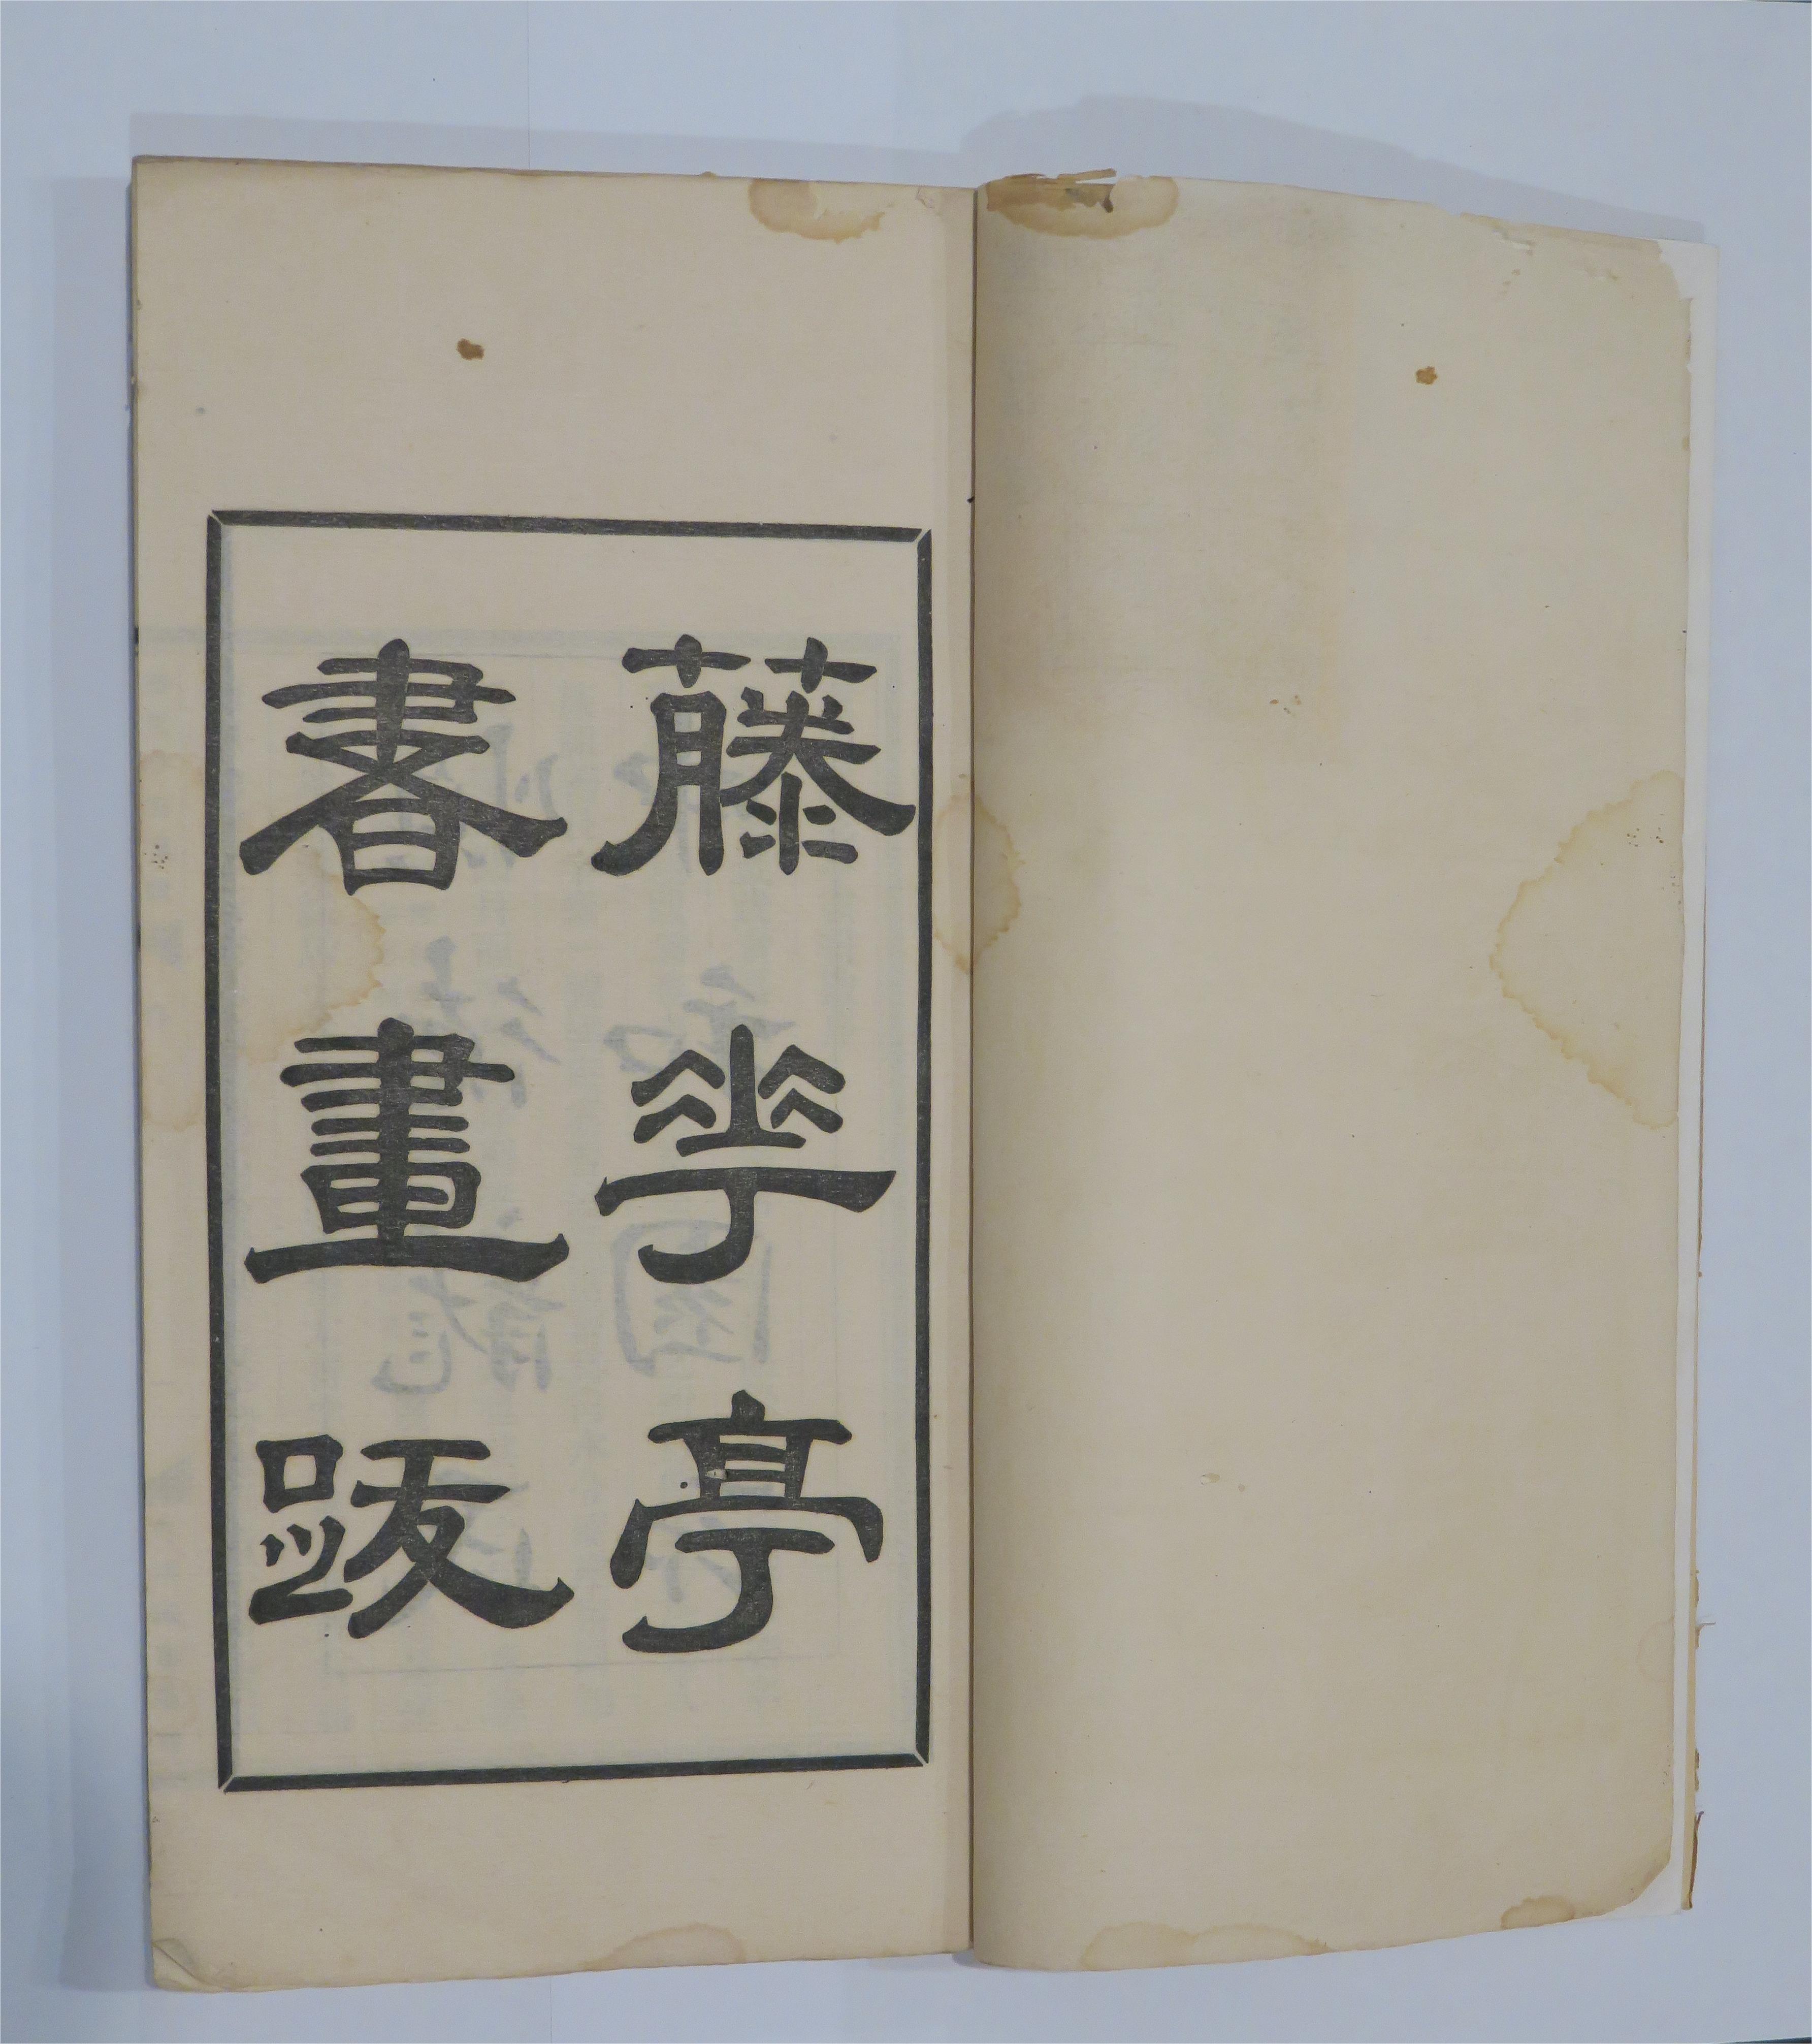 藤花亭
書畫跋